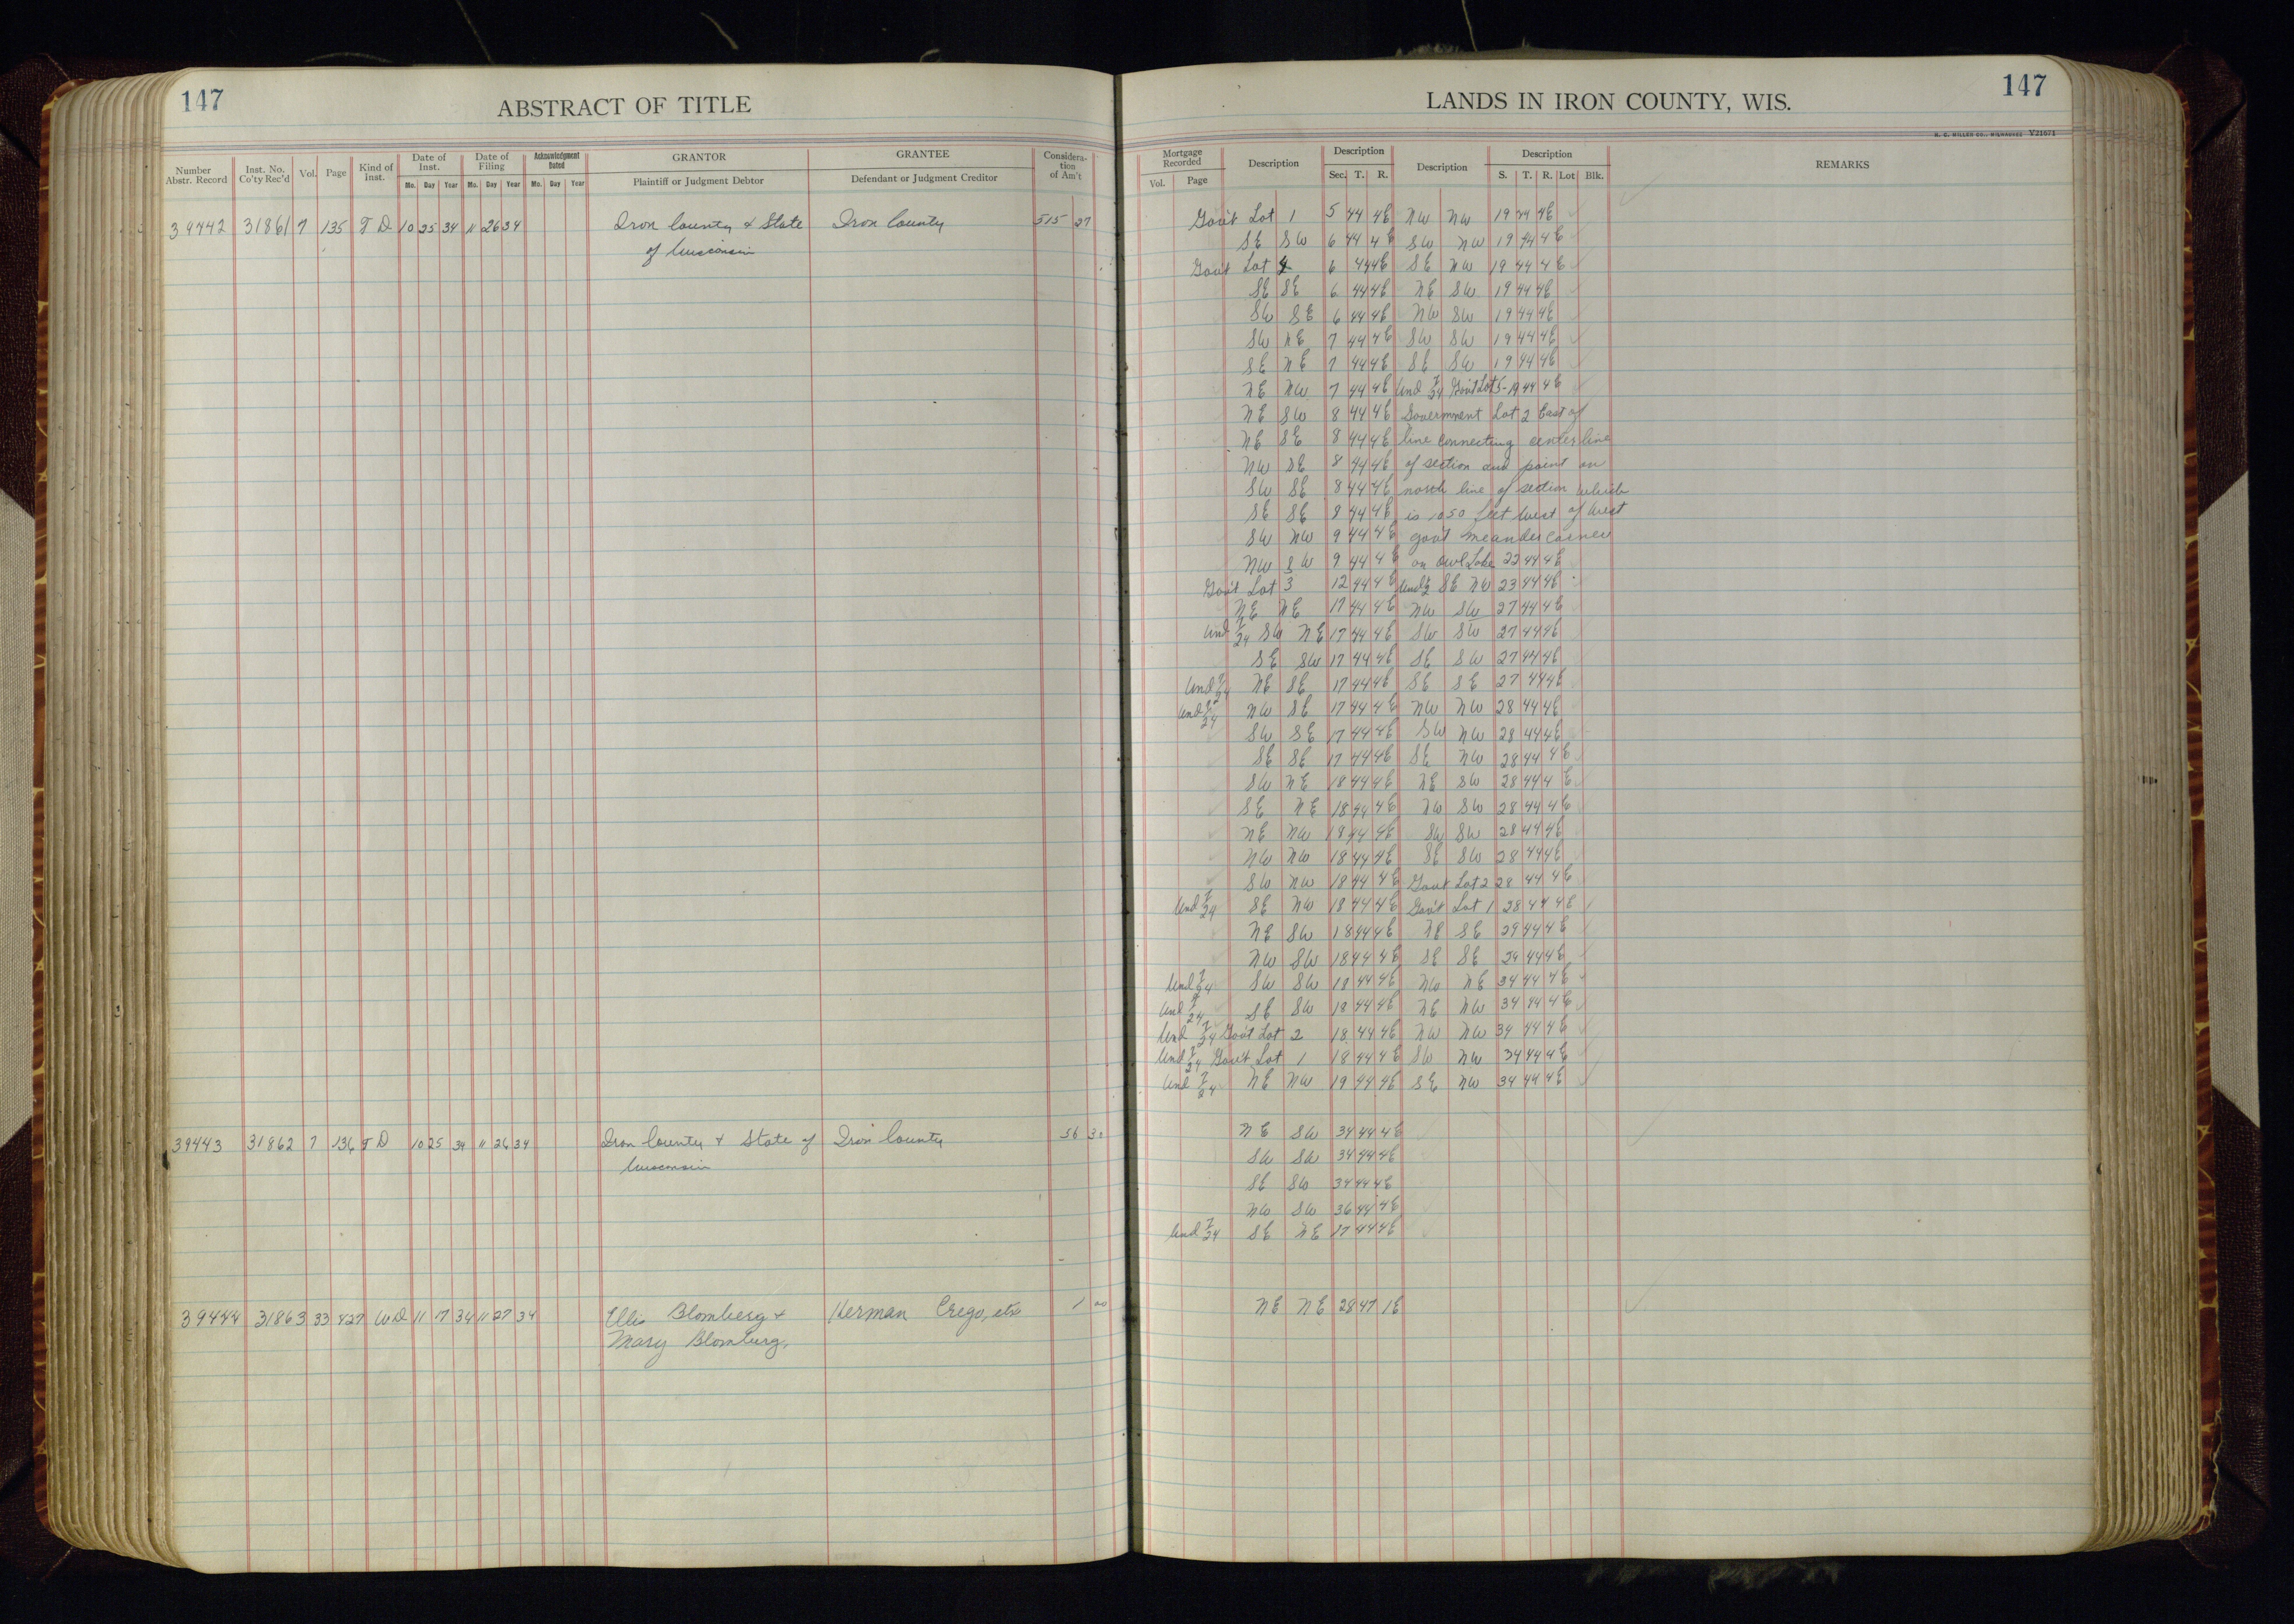 147
ABSTRACT OF TITLE
Number Abstr. Record Inst. No. Co'ty Rec'd Vol. Page Kind of Inst. Date of Inst. Mo. Day Year Date of Filing Mo. Day Year Acknowledgment Dated Mo. Day Year GRANTOR Plaintiff or Judgment Debtor GRANTEE Defendant or Judgment Creditor Considera-tion of Am't
39442 31861 7 135 T D 10 25 34 11 26 34 Iron County & State Iron County 515 27
of Wisconsin
39443 31862 7 136 T D 10 25 34 11 26 34 Iron County & State of Iron County 56 30
Wisconsin
39444 31863 33 427 WD 11 17 34 11 27 34 Ellis Blomberg & Herman Crego, etx 1 00
Mary Blomberg,
147
LANDS IN IRON COUNTY, WIS.
H. C. MILLER CO., MILWAUKEE V21671
Mortgage Recorded Vol. Page Description Description Sec. T. R. Description Description S. T. R. Lot Blk. REMARKS
Gov't Lot 1 5 44 4E NW NW 19 44 4E
SE SW 6 44 4E SW NW 19 44 4E
Gov't Lot 4 6 44 4E SE NW 19 44 4E
SE SE 6 44 4E NE SW 19 44 4E
SW SE 6 44 4E NW SW 19 44 4E
SW NE 7 44 4E SW SW 19 44 4E
SE NE 7 44 4E SE SW 19 44 4E
NE NW 7 44 4E Und 7/24 Gov't Lot 5-19 44 4E
NE SW 8 44 4E Government Lot 2 East of
NE SE 8 44 4E line connecting center line
NW SE 8 44 4E of section and point on
SW SE 8 44 4E north line of section which
SE SE 8 44 4E is 1050 feet West of West
SW NW 9 44 4E gov't meander corner
NW SW 9 44 4E on Owl Lake 22 44 4E
Gov't Lot 3 12 44 4E Und 1/2 SE NW 23 44 4E
NE NE 17 44 4E NW SW 27 44 4E
Und 7/24 SW NE 17 44 4E SW SW 27 44 4E
SE SW 17 44 4E SE SW 27 44 4E
Und 7/24 NE SE 17 44 4E SE SE 27 44 4E
Und 7/24 NW SE 17 44 4E NW NW 28 44 4E
SW SE 17 44 4E SW NW 28 44 4E
SE SE 17 44 4E SE NW 28 44 4E
SW NE 18 44 4E NE SW 28 44 4E
SE NE 18 44 4E NW SW 28 44 4E
NE NW 18 44 4E SW SW 28 44 4E
NW NW 18 44 4E SE SW 28 44 4E
SW NW 18 44 4E Gov't Lot 2 28 44 4E
Und 7/24 SE NW 18 44 4E Gov't Lot 1 28 44 4E
NE SW 18 44 4E NE SE 29 44 4E
NW SW 18 44 4E SE SE 29 44 4E
Und 7/24 SW SW 18 44 4E NW NE 34 44 4E
Und 7/24 SE SW 18 44 4E NE NW 34 44 4E
Und 7/24 Gov't Lot 2 18 44 4E NW NW 34 44 4E
Und 7/24 Gov't Lot 1 18 44 4E SW NW 34 44 4E
Und 7/24 NE NW 19 44 4E SE NW 34 44 4E
NE SW 34 44 4E
SW SW 34 44 4E
SE SW 34 44 4E
NW SW 36 44 4E
Und 7/24 SE NE 17 44 4E
NE NE 28 47 1E